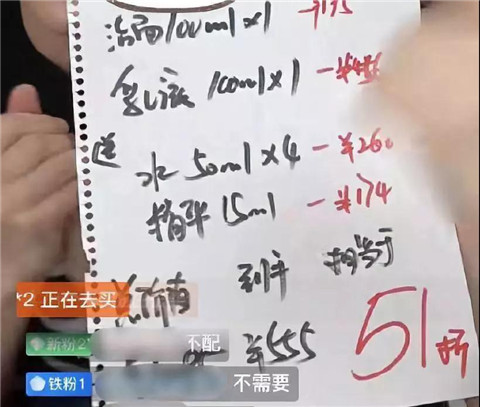 洁面100ml×1 —¥175
乳液 100ml×1 —¥
送
水 50ml×4 —¥260
精华 15ml —¥174
到手 相当于
¥555 51折
*2 正在去买
新粉2 不配
铁粉1 不需要